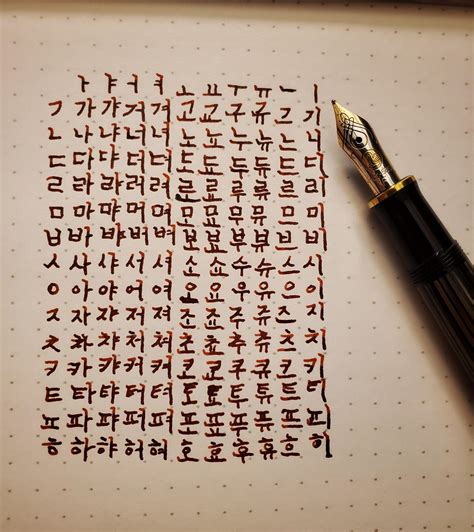 ㅏ ㅑ ㅓ ㅕ ㅗ ㅛ ㅜ ㅠ ㅡ ㅣ
ㄱ 가 갸 거 겨 고 교 구 규 그 기
ㄴ 나 냐 너 녀 노 뇨 누 뉴 느 니
ㄷ 다 댜 더 뎌 도 됴 두 듀 드 디
ㄹ 라 랴 러 려 로 료 루 류 르 리
ㅁ 마 먀 머 며 모 묘 무 뮤 므 미
ㅂ 바 뱌 버 벼 보 뵤 부 뷰 브 비
ㅅ 사 샤 서 셔 소 쇼 수 슈 스 시
ㅇ 아 야 어 여 오 요 우 유 으 이
ㅈ 자 쟈 저 져 조 죠 주 쥬 즈 지
ㅊ 차 챠 처 쳐 초 쵸 추 츄 츠 치
ㅋ 카 캬 커 켜 코 쿄 쿠 큐 크 키
ㅌ 타 탸 터 텨 토 툐 투 튜 트 티
ㅍ 파 퍄 퍼 펴 포 표 푸 퓨 프 피
ㅎ 하 햐 허 혀 호 효 후 휴 흐 히